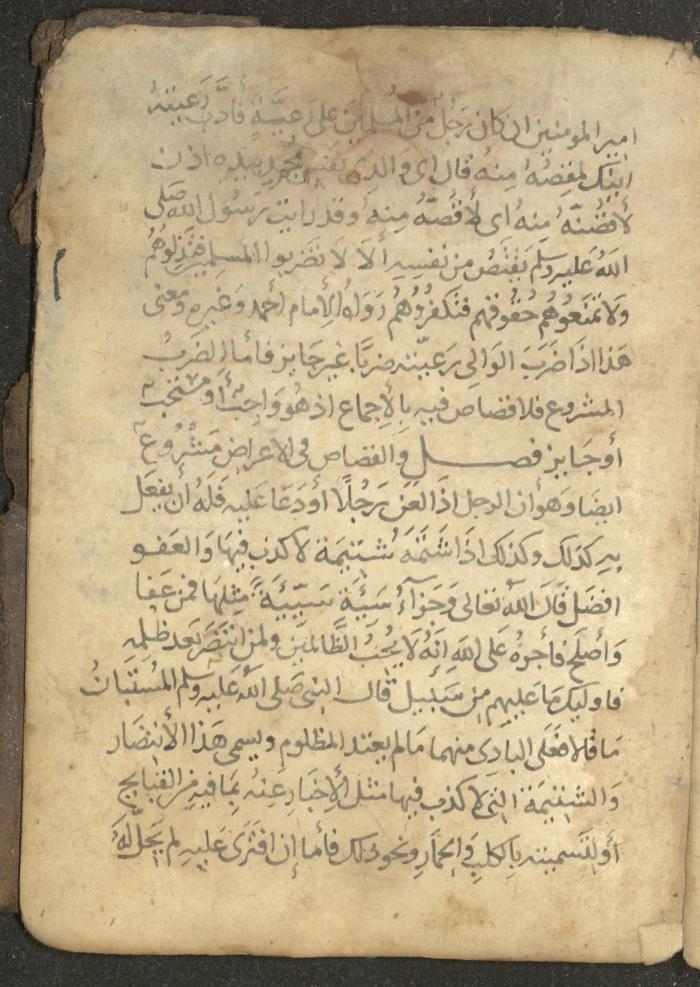 امير المومنين ان كان رجل من المسلمين على رعيةٍ فأدب رعيته
ائنك لمقصه منه قال اى والذى نفس محمد بيده اذن
لأقصنه منه اى لأقصنه منه وقد رايت رسول الله صلى
الله عليه وسلم يقتص من نفسه ألا لا تضربوا المسلمين فتذلوهم
ولا تمنعوهم حقوقهم فتكفروهم رواه الإمام أحمد وغيره ومعنى
هذا اذا ضرب الوالى رعيته ضربًا غير جايز فأما الضرب
المشروع فلا قصاص فيه بالإجماع اذ هو واجب أو مستحب
أو جايز فصل والقصاص فى الاعراض مشروع
ايضا وهو أن الرجل اذا لعن رجلًا أو دعا عليه فله أن يفعل
به كذلك وكذلك اذا شتمه شتيمة لا كذب فيها والعفو
افضل قال الله تعالى وجزآءُ سيئةٍ سيئةٌ مثلها فمن عفا
وأصلح فأجره على الله إنه لا يحب الظالمين ولمن انتصر بعد ظلمه
فاوليك ما عليهم من سبيل قال النبى صلى الله عليه وسلم المستبان
ما قالا فعلى البادى منهما ما لم يعتد المظلوم ويسمى هذا الأنتصار
والشتيمة التى لا كذب فيها مثل الإخبار عنه بما فيه من القبايح
أو تسميته بالكلب والحمار ونحو ذلك فأما إن افترى عليه لم يحل له